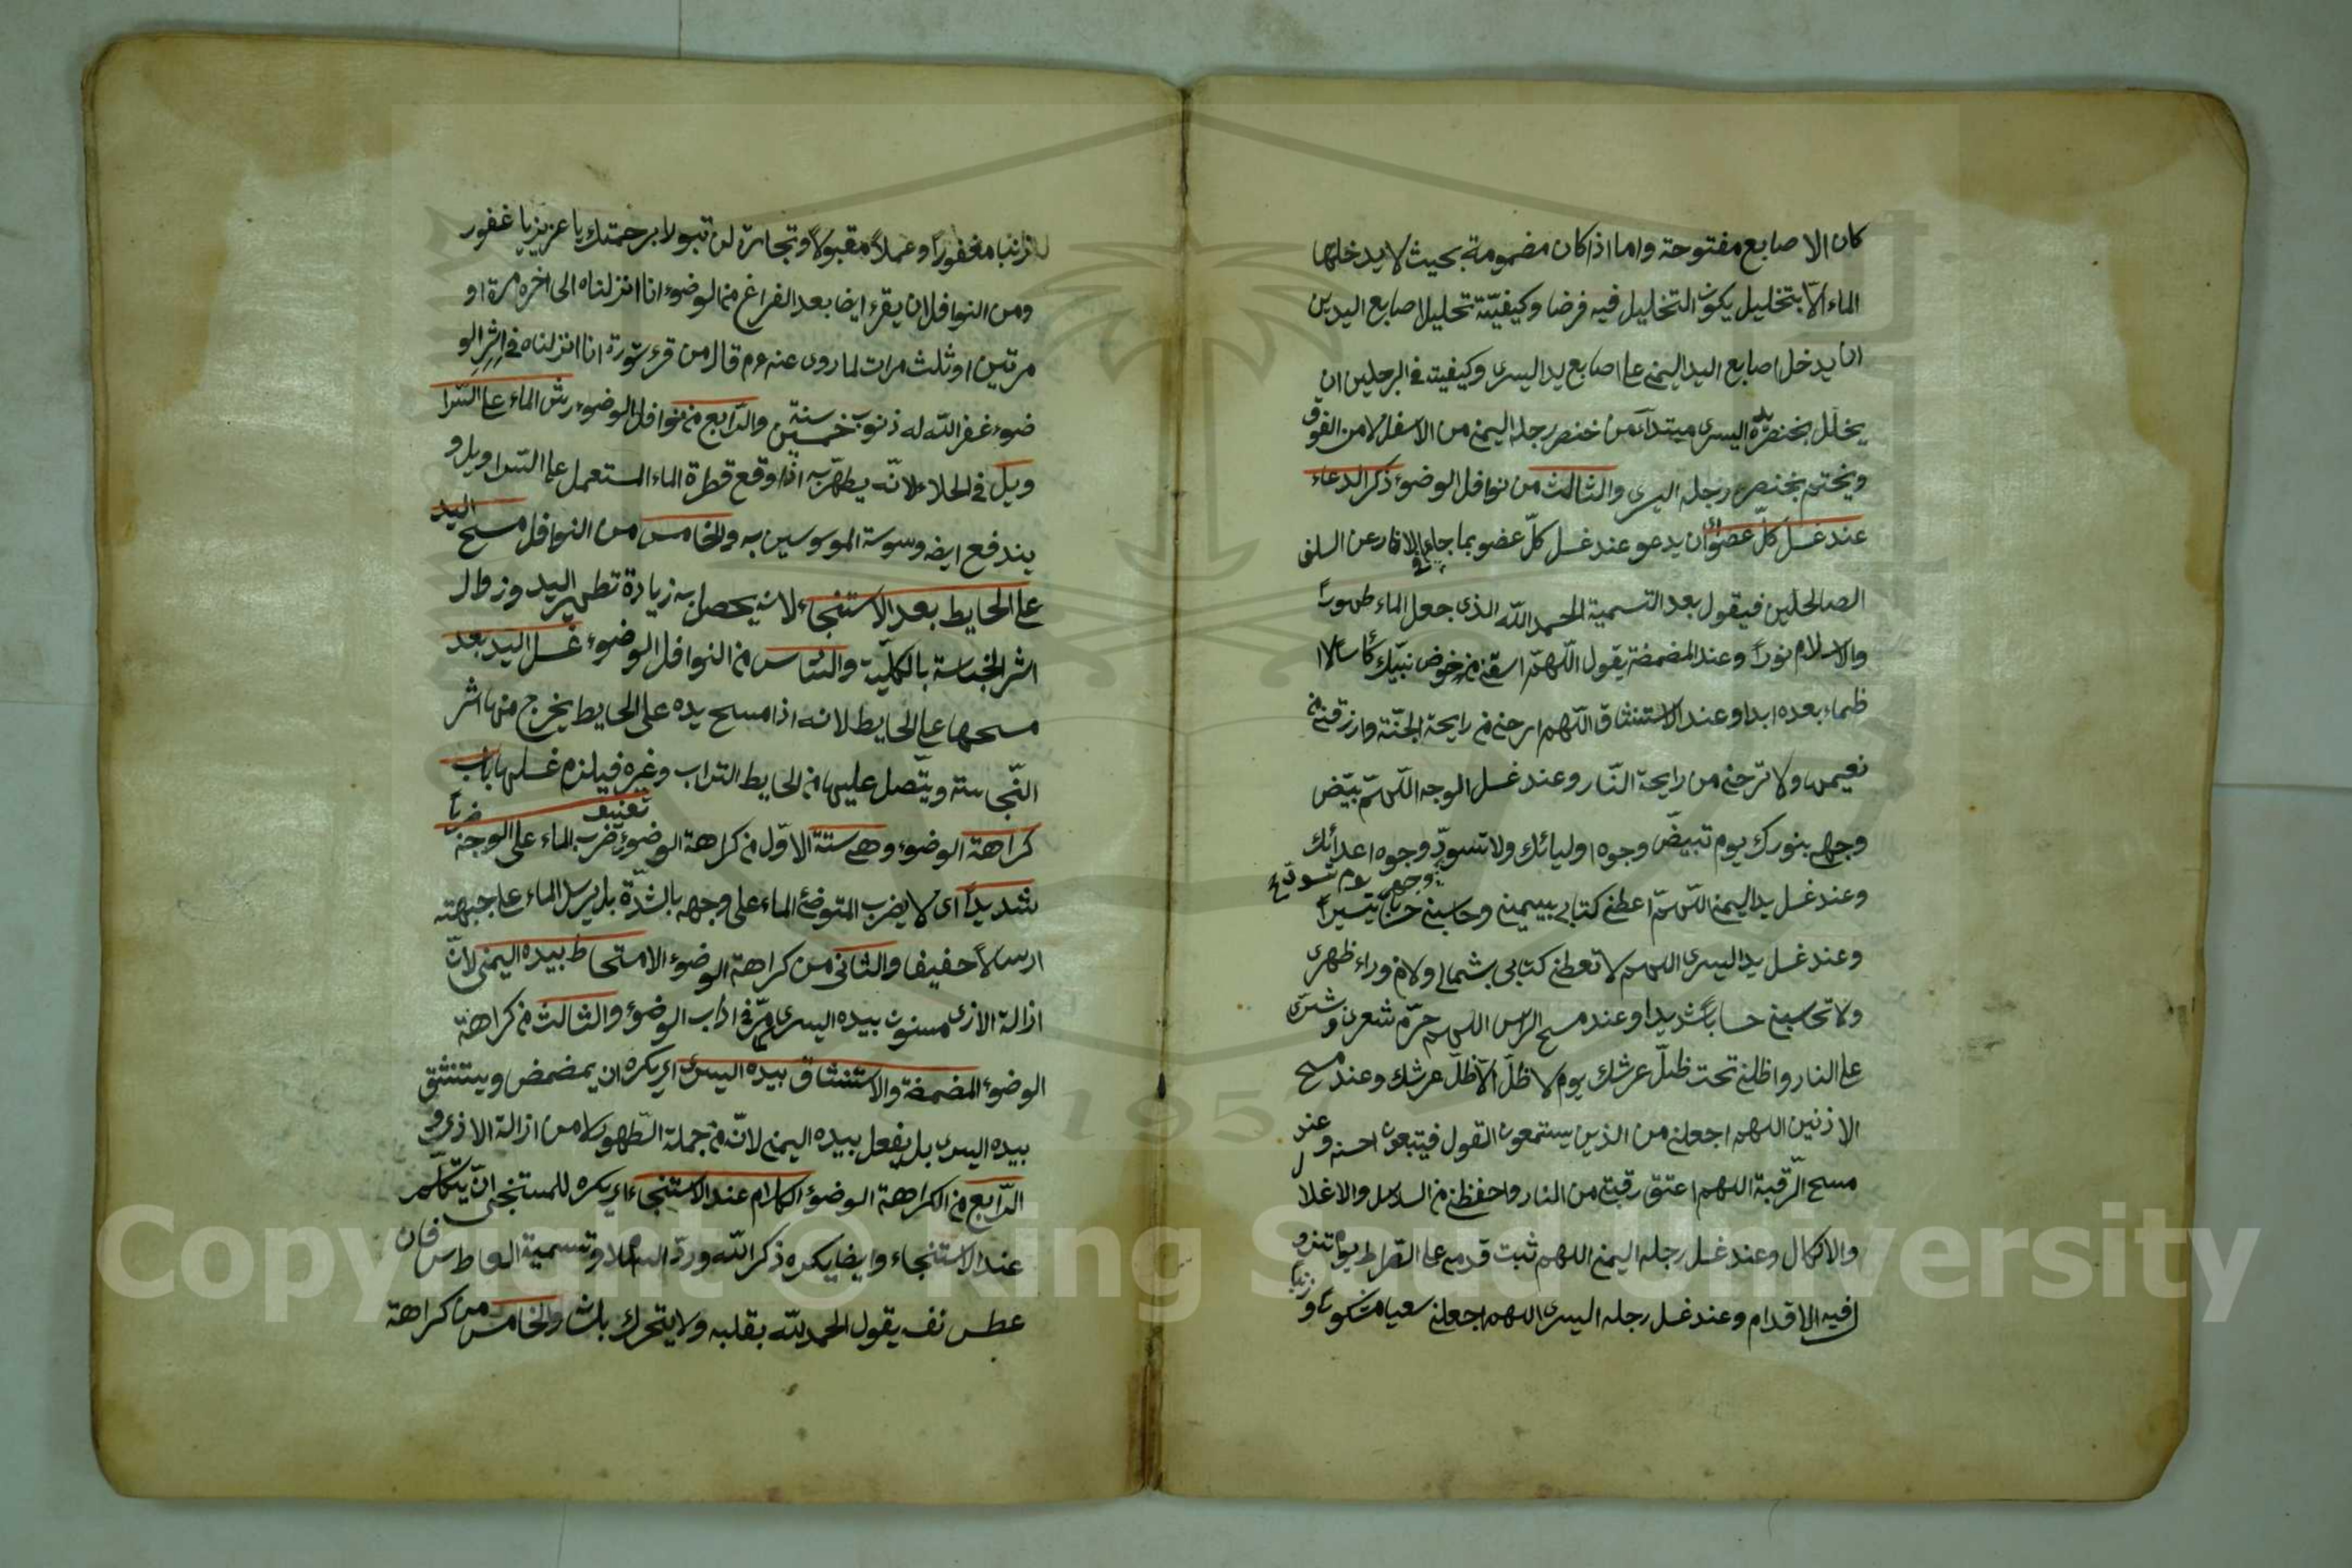 كان الاصابع مفتوحة واما اذا كان مضمومة بحيث لا يدخلها
الماء الّا بتخليل يكون التخليل فيه فرضا وكيفيّة تحليل اصابع اليدين
ان يدخل اصابع اليد اليمنى على اصابع يد اليسرى وكيفيته في الرجلين ان
يخلّل بخنصر يده اليسرى مبتدأ من خنصر رجله اليمنى من الاسفل لا من الفوق
ويختم بخنصر رجله اليسرى والثالث من نوافل الوضوء ذكر الدعاء
عند غسل كلّ عضو ان يدعو عند غسل كلّ عضو بما جاء في الاثار عن السلف
الصالحين فيقول بعد التسمية الحمد الله الذى جعل الماء طهورًا
والاسلام نورًا وعند المضمضة يقول اللّهمّ اسقني من حوض نبيّك كأسا لا
ظماء بعده ابدا وعند الاستنشاق اللّهم ارحني من رايحة الجنّة وارزقني من
نعيمها ولا ترحني من رايحة النّار وعند غسل الوجه اللّهمّ بيّض
وجهي بنورك يوم تبيضّ وجوه اوليائك ولا تسودّ وجوه اعدائك
وجهي يوم تسودّ
وعند غسل يد اليمنى اللّهمّ اعطني كتابي بيميني وحاسبني حسابًا يسيرًا
وعند غسل يد اليسرى اللهم لا تعطني كتابي بشمالي ولا من وراء ظهرى
ولا تحاسبني حسابًا شديدا وعند مسح الراس اللهم حرّم شعري وبشري
على النار واظلني تحت ظلّ عرشك يوم لا ظلّ الّا ظلّ عرشك وعند مسح
الاذنين اللهم اجعلني من الذين يستمعون القول فيتبعون احسنه وعند
مسح الرّقبة اللهم اعتق رقبتي من النار واحفظني من السلاسل والاغلال
والانكال وعند غسل رجله اليمنى اللهم ثبت قدمي على الصّراط يوم تزول
فيه الاقدام وعند غسل رجله اليسرى اللهم اجعلني سعيا مشكورًا و
ذنبا مغفورًا وعملاً مقبولاً وتجارة لن تبورلا برحمتك يا عزيز يا غفور
ومن النوافل ان يقرء ايضا بعد الفراغ من الوضوء انا انزلناه الى اخره مرة او
مرتين او ثلث مرات لما روى عنه عم قال من قرء سورة انا انزلناه في اثر الو
ضوء غفر الله له ذنوب خمسين سنة والرّابع من نوافل الوضوء رش الماء على السّرا
ويل في الخلاء لانّه يطهّر به اذا وقع قطرة الماء المستعمل على السّراويل و
يندفع ايضه وسوسة الموسوسين به والخامس من النوافل مسح اليد
على الحايط بعد الاستنجاء لانه يحصل به زيادة تطهير اليد وزوال
اثر النجاسة بالكلّيّة والسّادس من النوافل الوضوء غسل اليد بعد
مسحها على الحايط لانه اذا مسح يده على الحايط يخرج منها اثر
النّجاسة ويتّصل عليها من الحايط التراب وغيره فيلزم غسلها باب
كراهة الوضوء وهى ستّة الاوّل من كراهة الوضوء تعنيف ضرب الماء على الوجه ضربًا
شديدًا اى لا يضرب المتوضئ الماء على وجهه بالشّدّة بل يرسل الماء على جبهته
ارسالاً خفيفا والثانى من كراهة الوضوء الامتخاط بيده اليمنى لانّ
ازالة الاذى مسنون بيده اليسرى كما مرّ في اداب الوضوء والثالث من كراهة
الوضوء المضمضة والاستنشاق بيده اليسرى اى يكره ان يمضمض ويستنشق
بيده اليسرى بل يفعل بيده اليمنى لانّه من جملة الطّهور لا من ازالة الاذى و
الرّابع من الكراهة الوضوء الكلام عند الاستنجاء اى يكره للمستنجى ان يتكلّم
عند الاستنجاء وايضا يكره ذكر الله وردّ السلام وتسمية العاطس فان
عطس نفسه يقول الحمد لله بقلبه ولا يتحرك لسانه والخامس من كراهة
Copyright © King Saud University
1957